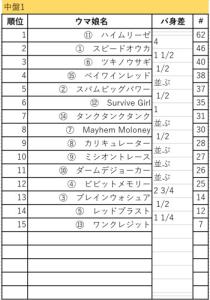 中盤1
順位 ウマ娘名 バ身差 #
1 ⑪ ハイムリーゼ 62
4
2 ① スピードオウカ 46
1 1/2
3 ⑥ ツキノウサギ 40
1/2
4 ⑮ ベイワインレッド 38
並ぶ
5 ② スパムビッグパワー 37
1/2
6 ⑫ Survive Girl 35
1
7 ⑭ タンクタンクタンク 31
並ぶ
8 ⑦ Mayhem Moloney 30
1/2
9 ⑧ カリキュレーター 28
並ぶ
10 ⑨ ミシオントレース 27
並ぶ
11 ⑩ ダームデジョーカー 26
1/2
12 ④ ビビットメモリー 25
2 3/4
13 ③ ブレインウォシュア 14
1/2
14 ⑤ レッドブラスト 12
1 1/4
15 ⑬ ワンクレジット 7